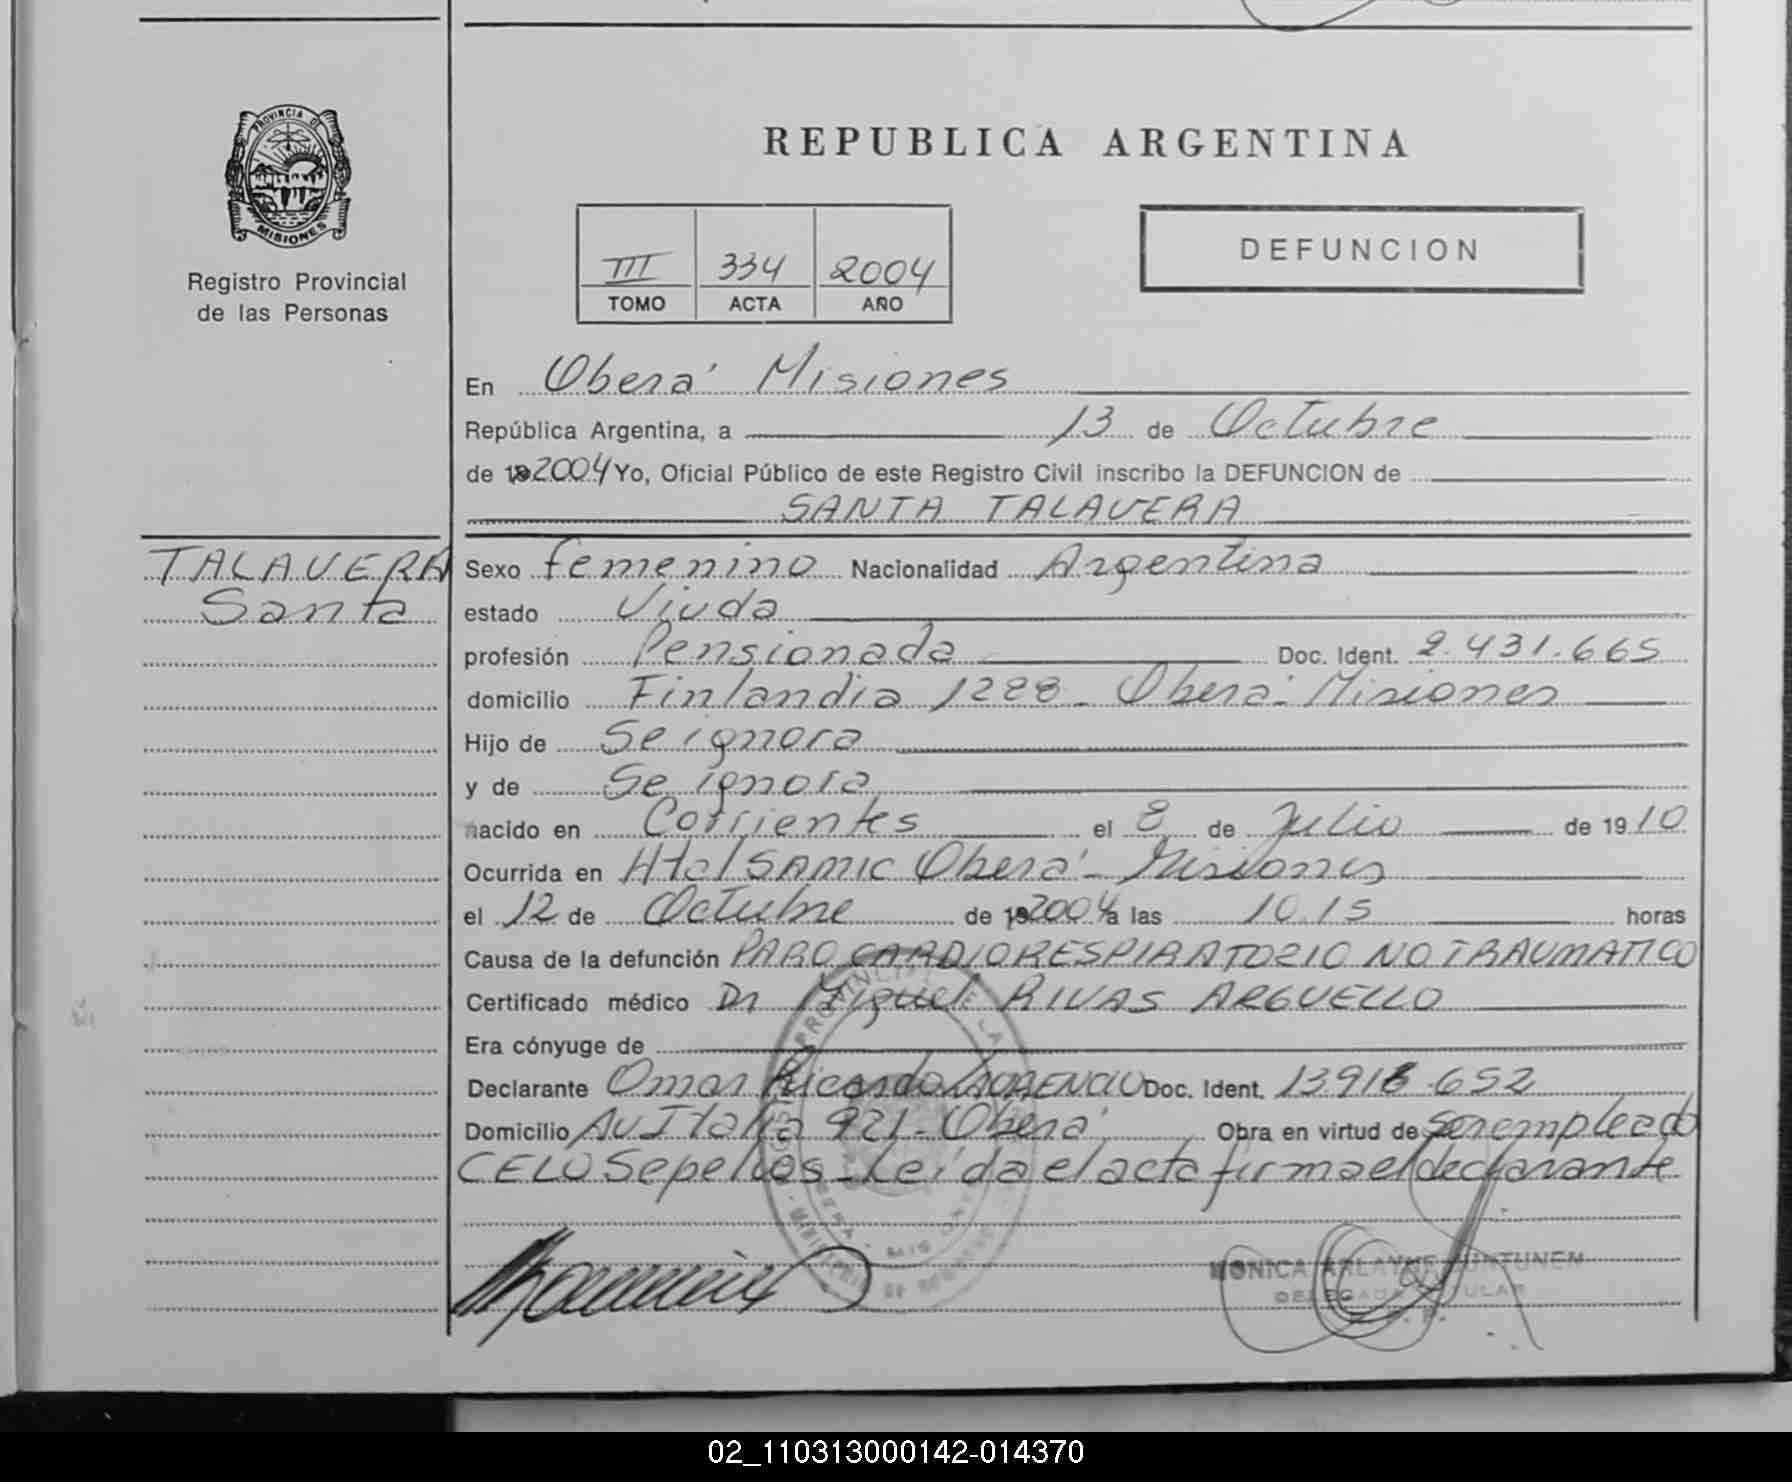 PROVINCIA DE
MISIONES
Registro Provincial
de las Personas
REPUBLICA ARGENTINA
III 334 2004
TOMO ACTA AÑO
DEFUNCION
En Oberá Misiones
República Argentina, a 13 de Octubre
de 19 2004 Yo, Oficial Público de este Registro Civil inscribo la DEFUNCION de
SANTA TALAVERA
TALAVERA
Santa
Sexo femenino Nacionalidad Argentina
estado Viuda
profesión Pensionada Doc. Ident. 2.431.665
domicilio Finlandia 1288 - Oberá - Misiones
Hijo de Se ignora
y de Se ignora
nacido en Corrientes el 8 de Julio de 1910
Ocurrida en Htal SAMIC Oberá - Misiones
el 12 de Octubre de 19 2004 a las 10.15 horas
Causa de la defunción PARO CARDIORESPIRATORIO NO TRAUMATICO
Certificado médico Dr Miguel RIVAS ARGUELLO
Era cónyuge de
Declarante Omar Ricardo Doc. Ident. 13.918.652
Domicilio Av Italia 921 - Oberá Obra en virtud de ser empleado
CELO Sepelios - Leída el acta firma el declarante
MONICA
DELEGADA TITULAR
02_110313000142-014370